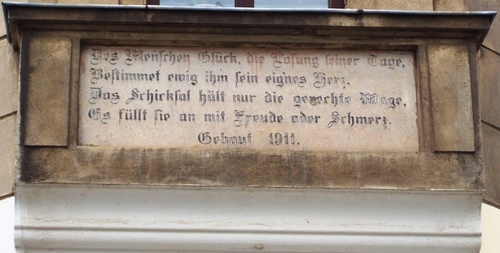 Des Menschen Glück, die Losung seiner Tage,
Bestimmet ewig ihm sein eignes Herz.
Das Schicksal hält nur die gerechte Wage,
Es füllt sie an mit Freude oder Schmerz.
Gebaut 1911.